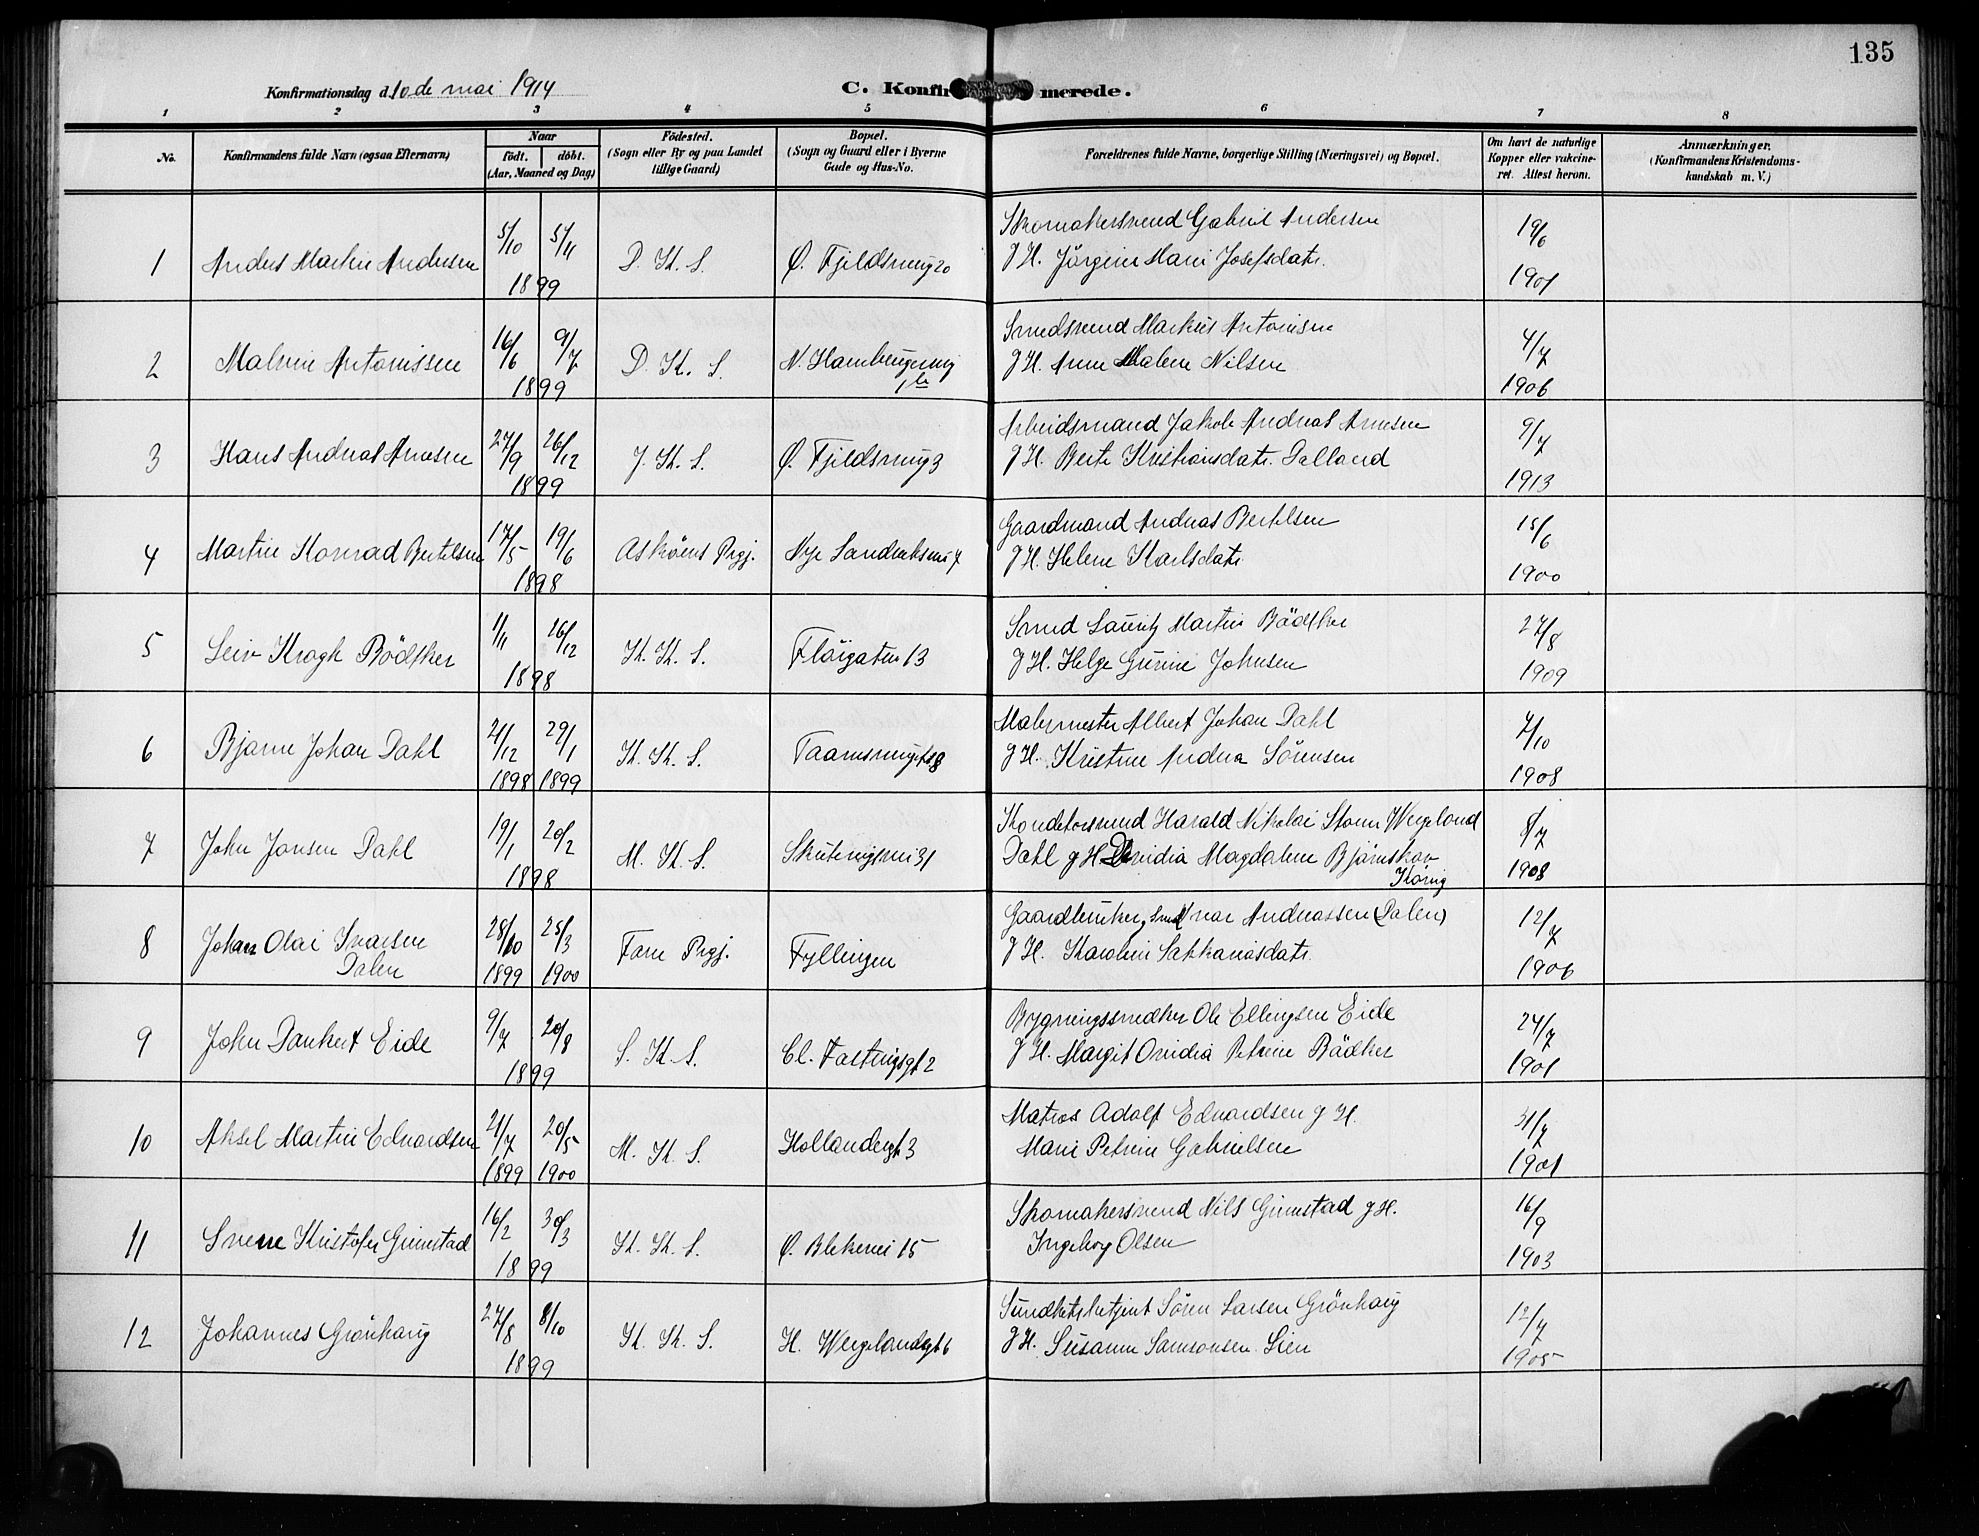 135
Konfirmationsdag d. 10de mai 1914
C. Konfirmerede.
1 2 3 4 5 6 7 8
No.
Konfirmandens fulde Navn (ogsaa Efternavn)
Naar
født. døbt.
(Aar, Maaned og Dag)
Födested.
(Sogn eller By og paa Landet
tillige Gaard)
Bopæl.
(Sogn og Gaard eller i Byerne
Gade og Hus-No.
Forældrenes fulde Navne, borgerlige Stilling (Næringsvei) og Bopæl.
Om havt de naturlige
Kopper eller vakcine-
ret. Attest herom.
Anmærkninger.
(Konfirmandens Kristendoms-
kundskab m. V.)
1 Anders Martin Andersen 5/10 5/11 1899 D. K. S. Ø. Fjeldsmug 20
Skomakersvend Gabriel Andersen
g H. Jörgine Marie Josefsdatr.
19/6 1901
2 Malvin Antonissen 16/6 9/7 1899 D. K. S. N. Hamburgersmug 1 b
Smedsvend Markus Antonisen
g H. Anne Malene Nilsen
4/7 1906
3 Hans Andreas Arnesen 27/9 26/12 1899 J. K. S. Ø. Fjeldsmug 3
Arbeidsmand Jakob Andreas Arnesen
g H. Berte Kristiansdatr. Dalland
9/7 1913
4 Martin Konrad Bertelsen 17/5 19/6 1898 Askøens Prgj. Nye Sandviksvei 7
Gaardmand Andreas Bertelsen
g H. Helene Karlsdatr.
15/6 1900
5 Leiv Krogh Bödtker 1/11 26/12 1898 K. K. S. Flöigaten 13
Smed Lauritz Martin Bödtker
g H. Helga Gurine Johnsen
27/8 1909
6 Bjarne Johan Dahl 21/12 29/1 1898 1899 K. K. S. Taarnsmuget 8
Malermester Albert Johan Dahl
g H. Kristine Andrea Sörensen
7/10 1908
7 John Jansen Dahl 19/1 20/2 1898 M. K. S. Skuteviksvei 31
Konditorsvend Harald Nikolai Storm Wergeland
Dahl g H. Ovidia Magdalene Björnskov
König
8/7 1908
8 Johan Olai Ivarsen 28/10 25/3
Dalen 1899 1900 Fane Prgj. Fyllingen
Gaardbruker, Smed Ivar Andreassen (Dalen)
g H. Karoline Sakkariasdatr.
12/7 1906
9 John Dankert Eide 9/7 20/8 1899 S. K. S. Cl. Fastingsgt 2
Bygningssnedker Ole Ellingsen Eide
g H. Margit Ovidia Petrine Bödker
24/7 1901
10 Aksel Martin Edvardsen 21/7 20/5 1899 1900 M. K. S. Hollendergt 3
Matros Adolf Edvardsen g H.
Marie Petrine Gabrielsen
31/7 1901
11 Sverre Kristofer Grimstad 16/2 30/3 1899 K. K. S. Ø. Blekevei 15
Skomakersvend Nils Grimstad g H.
Ingeborg Olsen
16/9 1903
12 Johannes Grönhaug 27/8 8/10 1899 K. K. S. H. Wergelandsgt 6
Sundhetsbetjent Sören Larsen Grönhaug
g H. Susanne Samsonsen Lien
12/7 1905